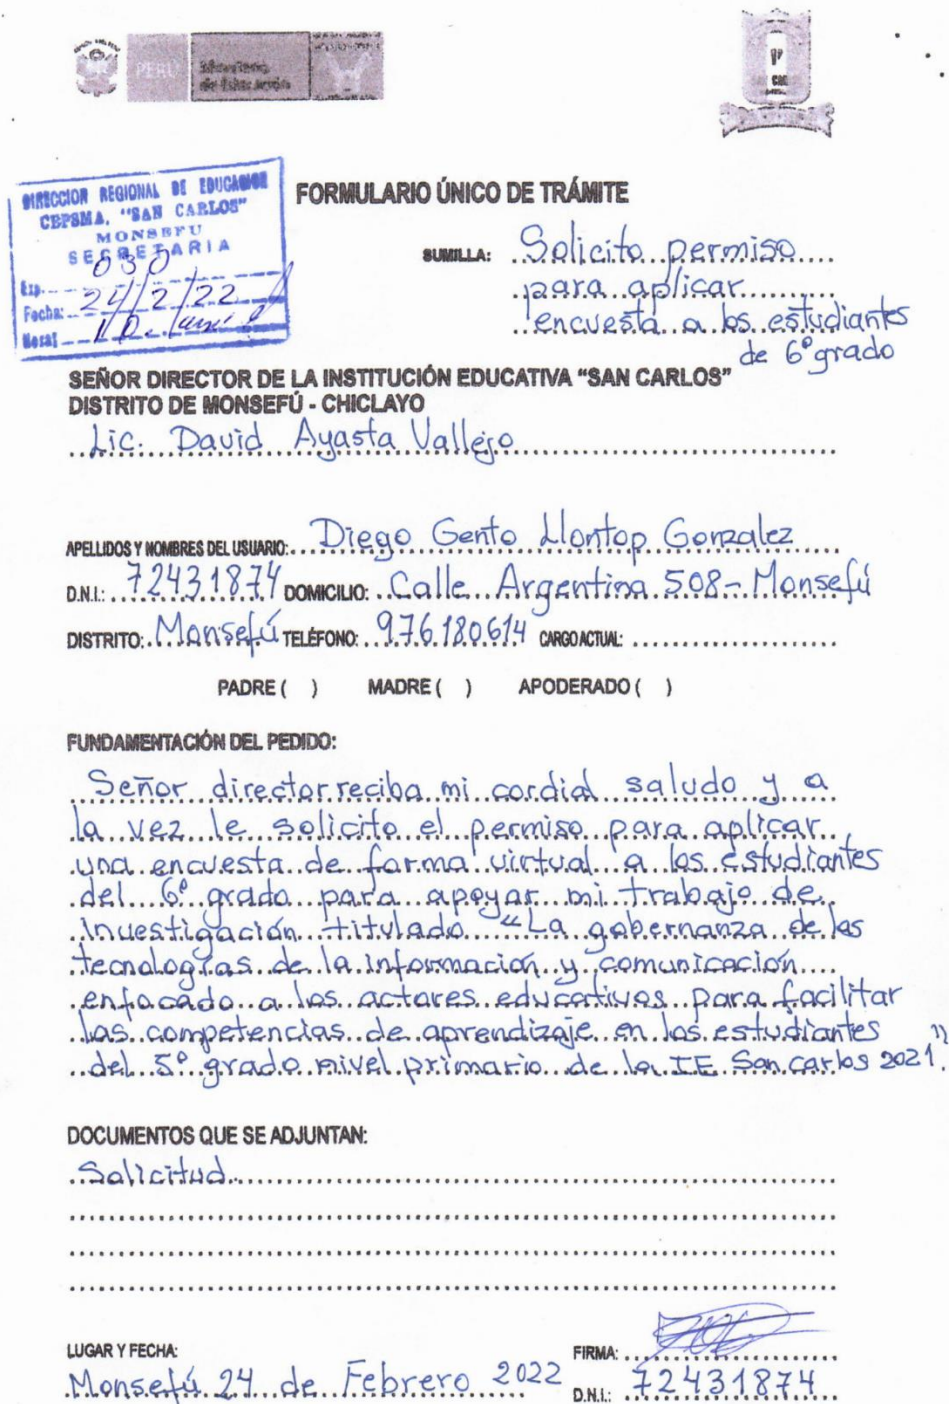 PERÚ
Ministerio
de Educación
DIRECCION REGIONAL DE EDUCACION
CEPSMA. "SAN CARLOS"
MONSEFU
SECRETARIA
Exp. 030
Fecha: 24/2/22
Hora:
FORMULARIO ÚNICO DE TRÁMITE
SUMILLA: Solicito permiso
para aplicar
encuesta a los estudiantes
de 6° grado
SEÑOR DIRECTOR DE LA INSTITUCIÓN EDUCATIVA "SAN CARLOS"
DISTRITO DE MONSEFÚ - CHICLAYO
Lic. David Ayasta Vallejo
APELLIDOS Y NOMBRES DEL USUARIO: Diego Gento Llontop Gonzalez
D.N.I.: 72431874 DOMICILIO: Calle Argentina 508 - Monsefú
DISTRITO: Monsefú TELÉFONO: 976180614 CARGO ACTUAL:
PADRE ( ) MADRE ( ) APODERADO ( )
FUNDAMENTACIÓN DEL PEDIDO:
Señor director reciba mi cordial saludo y a
la vez le solicito el permiso para aplicar
una encuesta de forma virtual a los estudiantes
del 6° grado para apoyar mi trabajo de
investigación titulado "La gobernanza de las
tecnologías de la información y comunicación
enfocado a los actores educativos para facilitar
las competencias de aprendizaje en los estudiantes
del 5° grado nivel primario de la IE San Carlos 2021".
DOCUMENTOS QUE SE ADJUNTAN:
Solicitud
LUGAR Y FECHA:
Monsefú 24 de Febrero 2022
FIRMA:
D.N.I.: 72431874